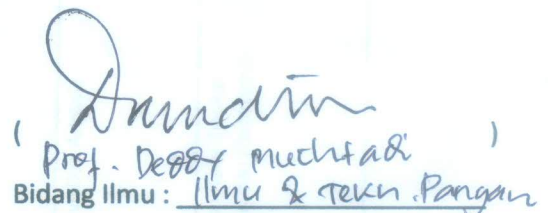 ( )
Prof. Deddy Muchtadi
Bidang Ilmu : Ilmu & Tekn. Pangan